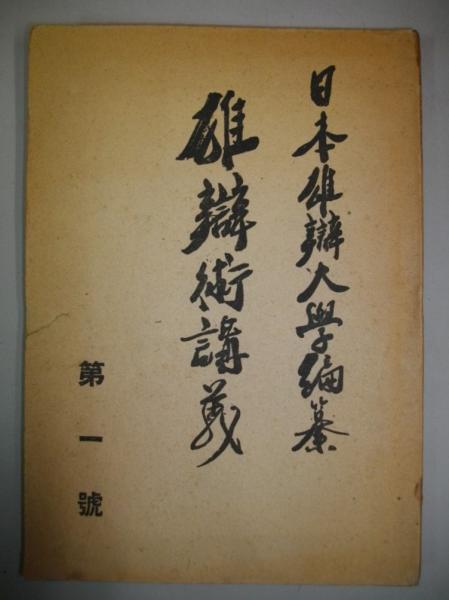 日本雄辯大學編纂
雄辯術講義
第一號